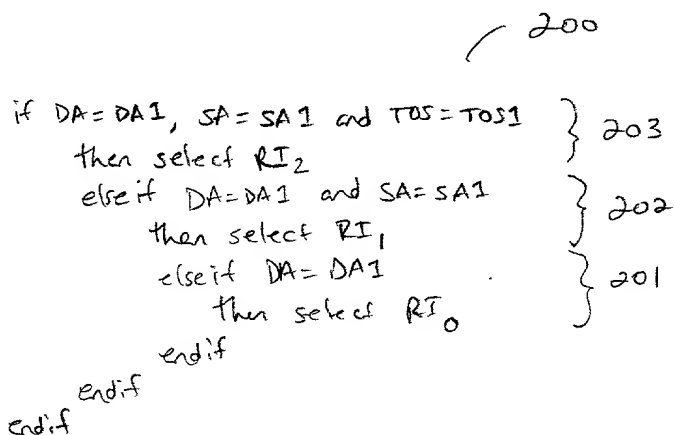 200
if DA = DA1, SA = SA1 and TOS = TOS1
then select RI2
else if DA = DA1 and SA = SA1
then select RI1
else if DA = DA1
then select RI0
endif
endif
endif
203
202
201